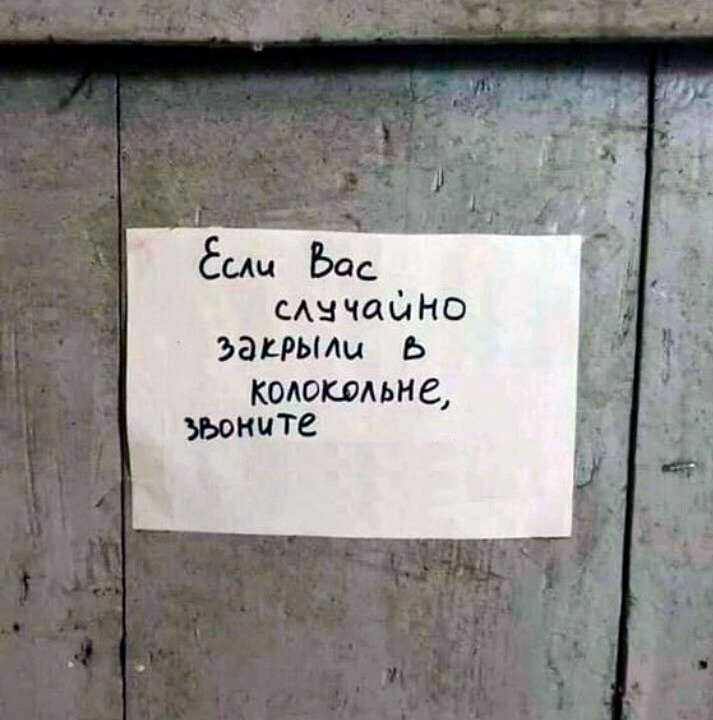 Если Вас
случайно
закрыли в
колокольне,
звоните